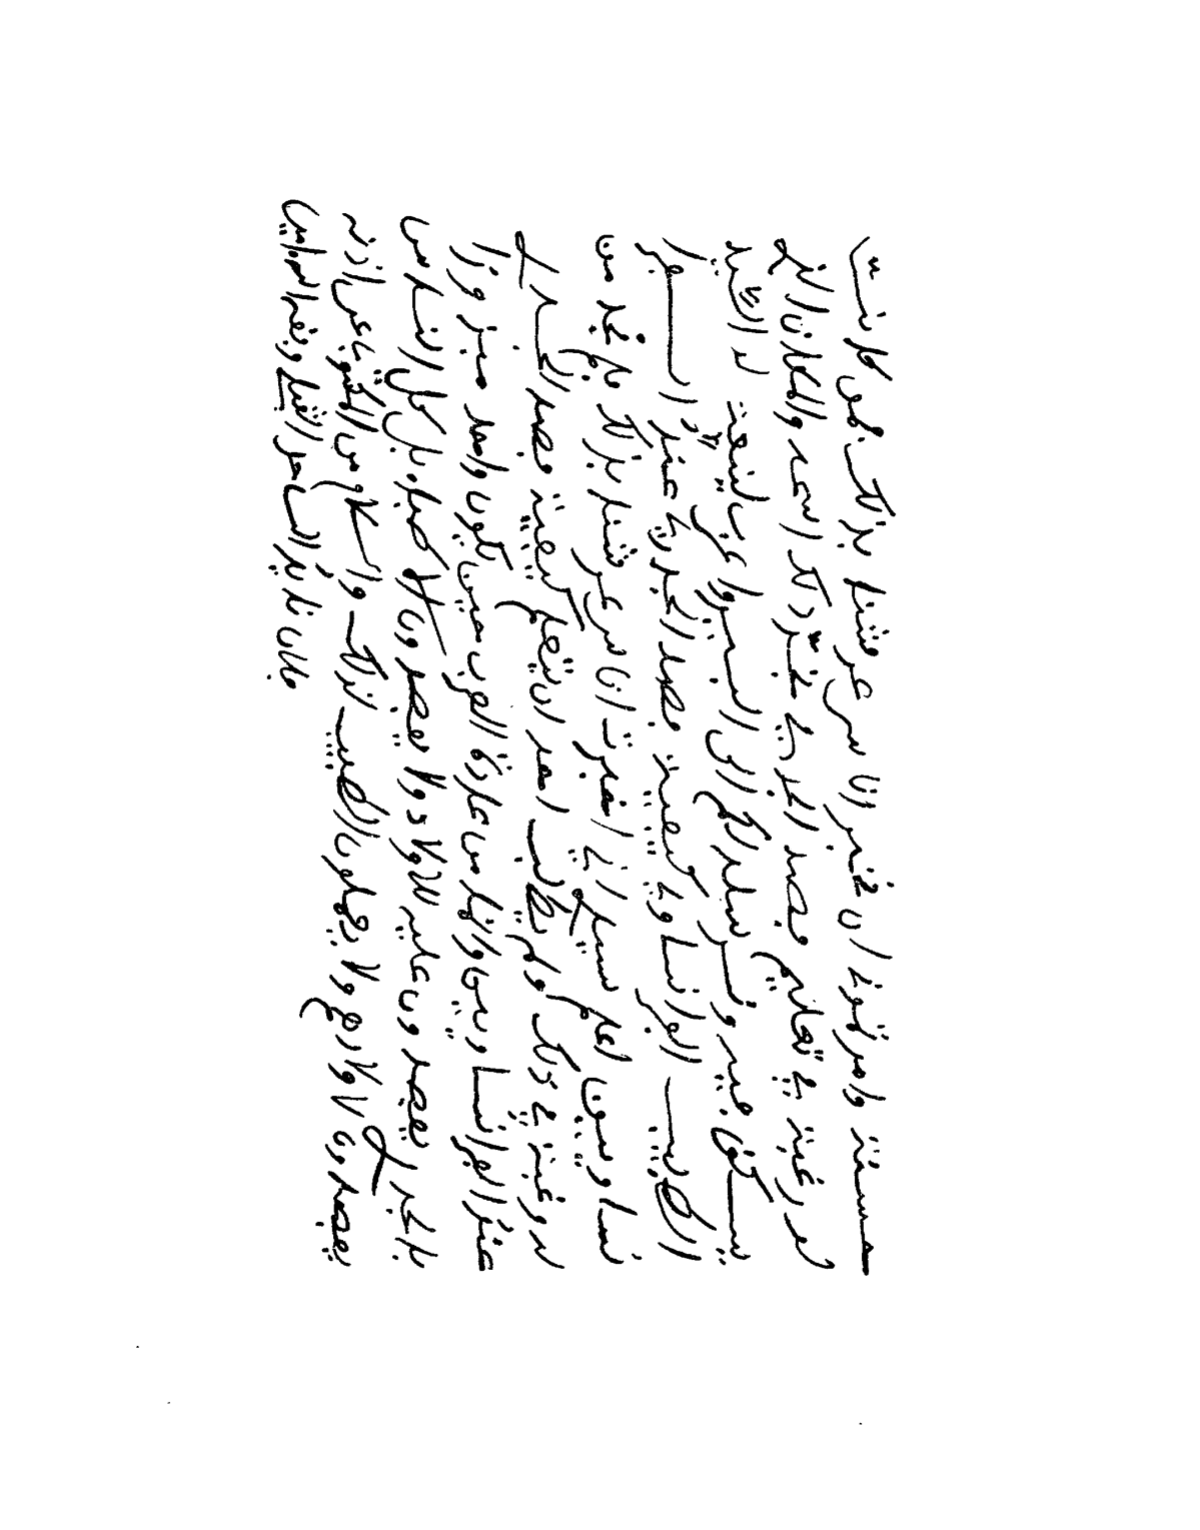 حسنة وامرتونا ان نخبر اناس عرشنا بذلك فمن كانت
له رغبة في تعليم فصد الجدري يخبر ذلك والمكان الذي
تسكن فيه ونرسله لكم الى البيرو عرب
الطبيب الفرانساوي كيفية فصد الجدري عند
نساويين اعلم سيادتك اني اخبرت اناس عرشنا بذلك فلم نجد من
له رغبة في ذلك ولم يطلب احد ان يتعلم كيفية فصد الجدري
عند الفرانساويين وانما من عادة العرب حين يكون واحد
بالجدر يفصدون عليه للاولاد ولا يفصدون الا بل كل الناس من
يفصدون لاولادهم ولا يجعلون الطبيب لذلك والسلام من المكتوب عن اذنه
فلان قايد الساحل القبلي